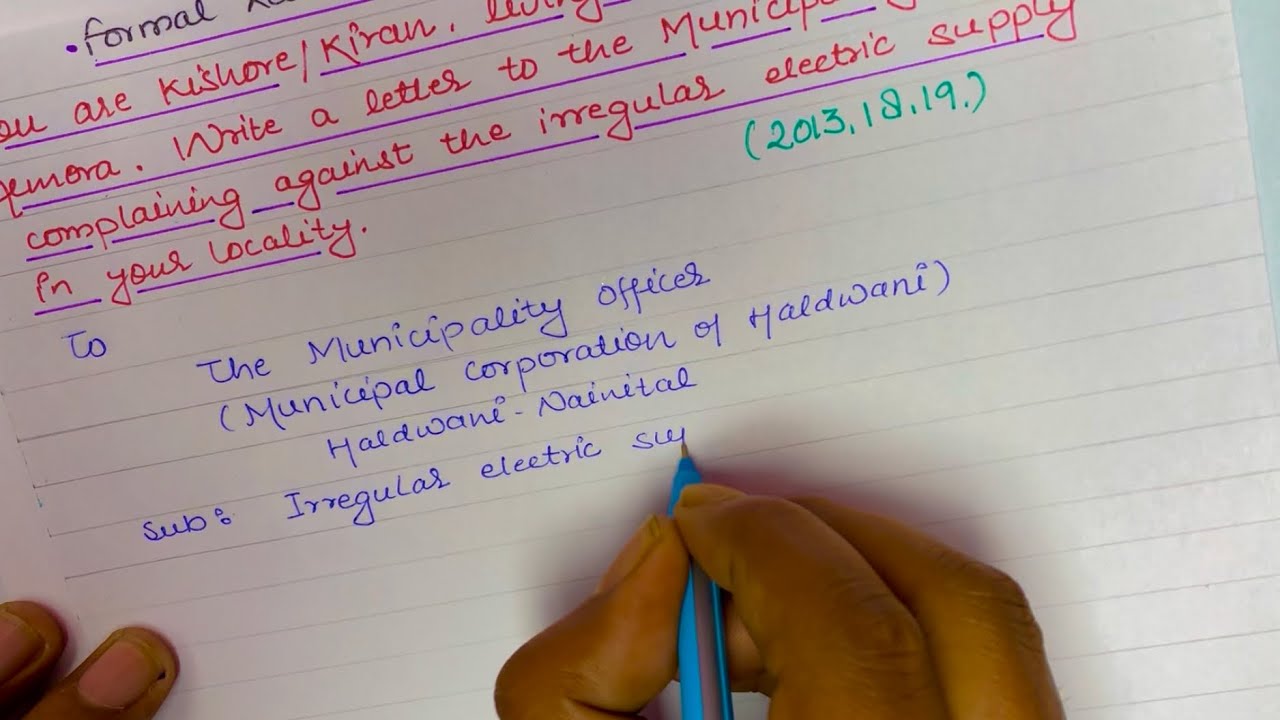 • formal
are Kishore/Kiran. living
Write a letter to the
complaining against the irregular electric supply
in your locality.
(2013.18.19.)
To
The Municipality officer
(Municipal corporation of Haldwani)
Haldwani-Nainital
Sub: Irregular electric